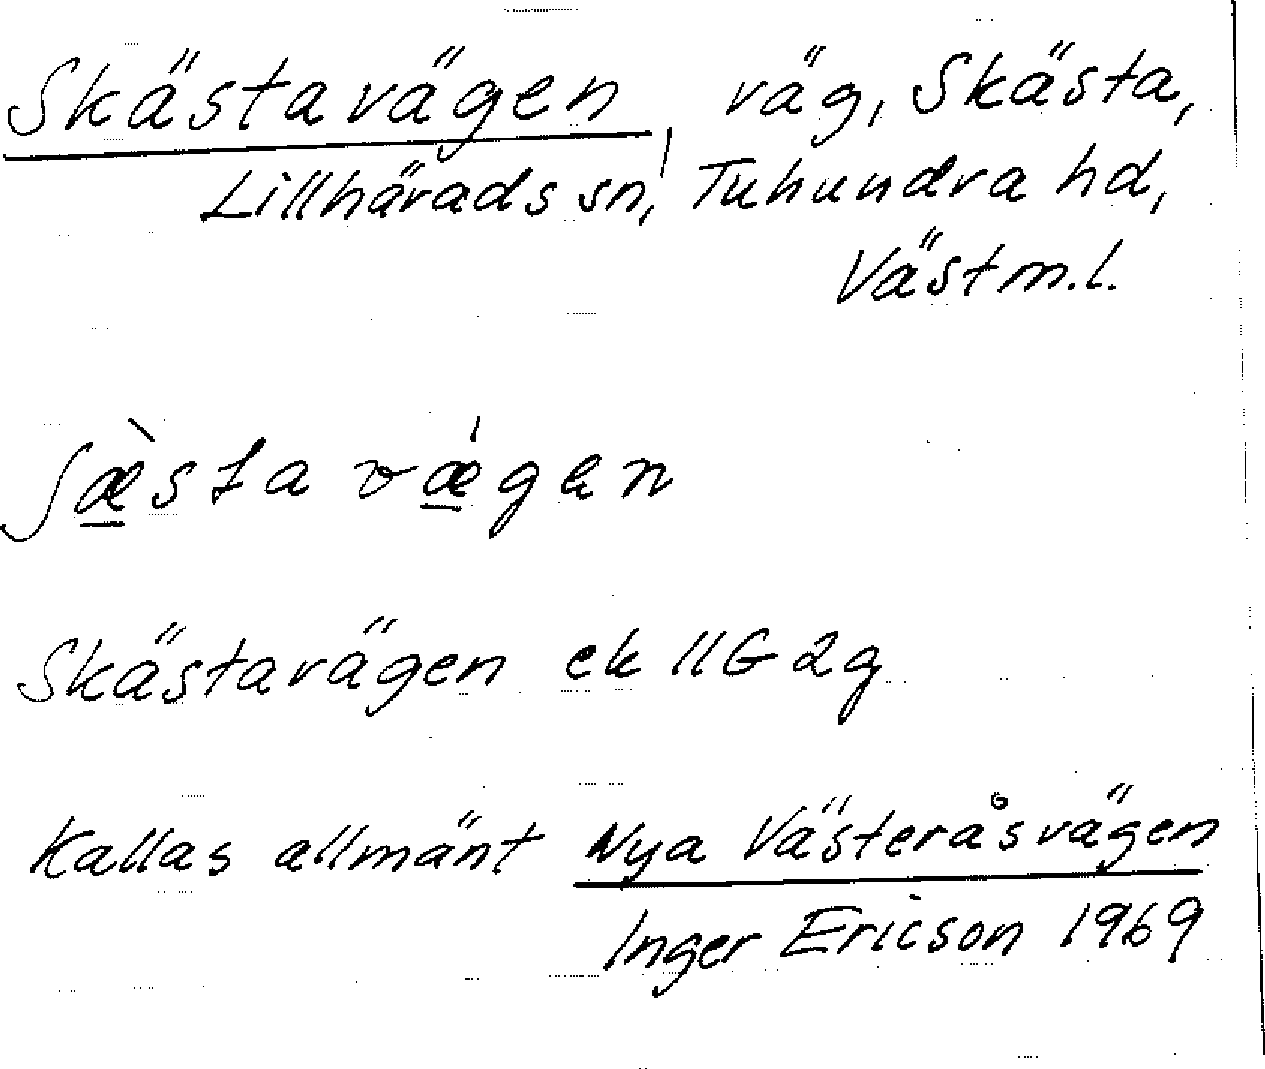 Skästavägen, väg, Skästa,
Lillhärads sn, Tuhundra hd,
Västm.l.
ʃæ̲̀sta vǽ̲gen
Skästavägen ek 11G2g
Kallas allmänt Nya Västeråsvägen
Inger Ericson 1969